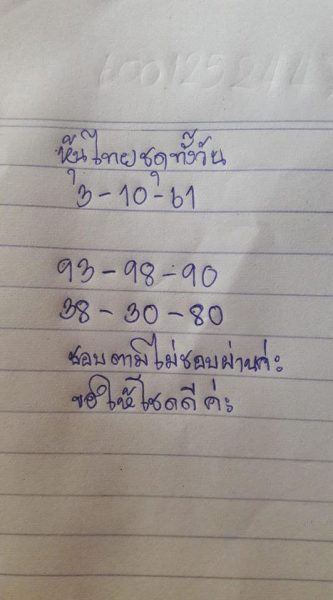 หุ้นไทยชุดทั้งวัน
3-10-61
93-98-90
38-30-80
ชอบตามไม่ชอบผ่านค่ะ
ขอให้โชคดีค่ะ